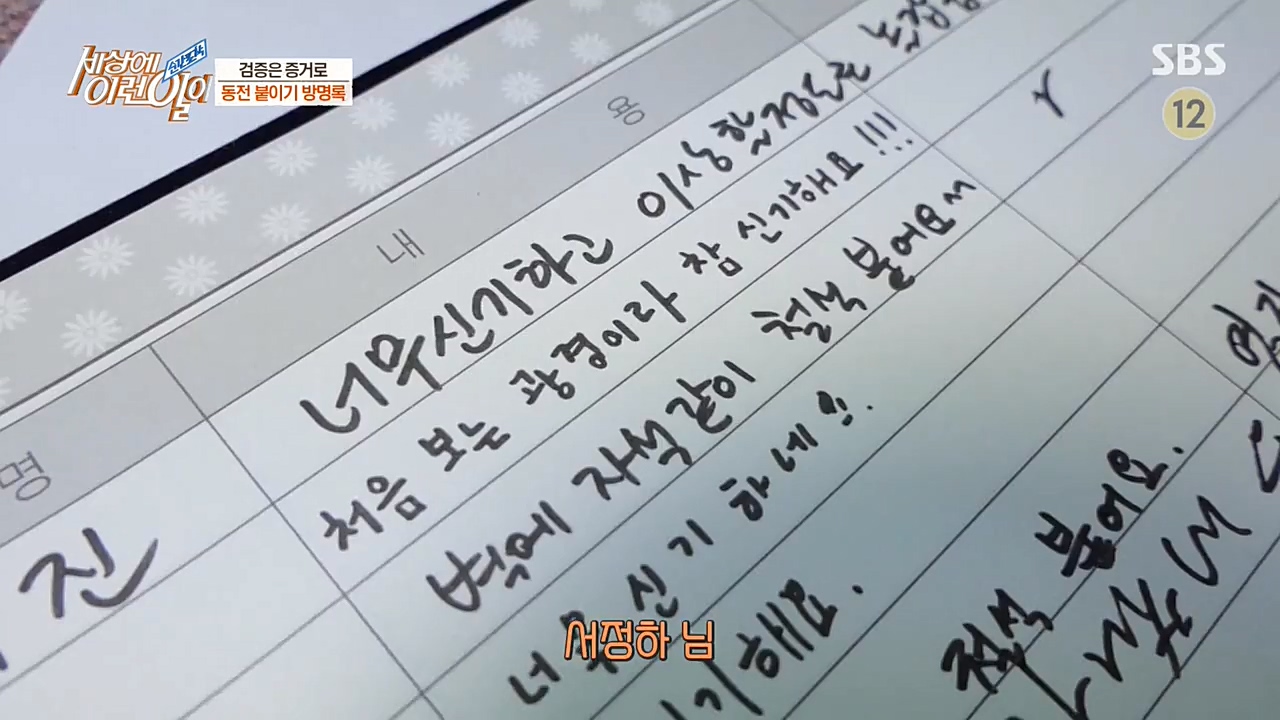 순간포착
세상에
이런일이
검증은 증거로
동전 붙이기 방명록
SBS
12
내 용
명
너무신기하고 이상할정도로
처음 보는 광경이라 참 신기해요!!!
벽에 자석같이 철썩 붙어요
너무 신기하네요.
기해요.
철썩 붙어요.
진
서정하 님